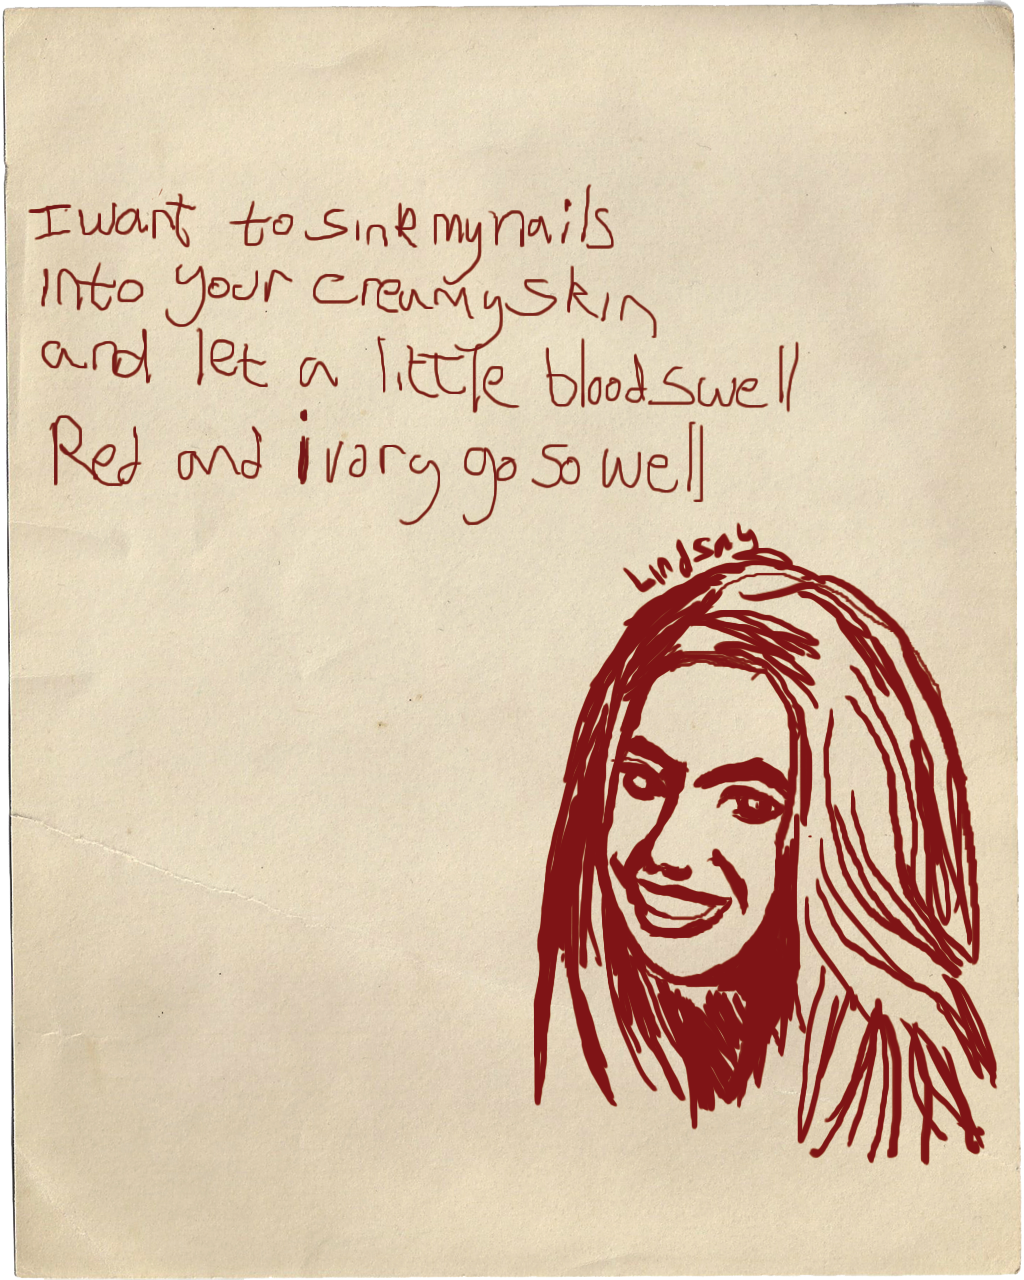 I want to sink my nails
into your creamy skin
and let a little blood swell
Red and ivory go so well
Lindsay